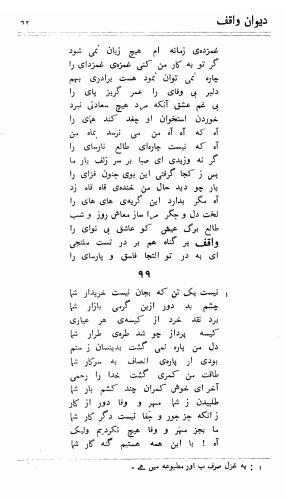 دیوان واقف
۶۲
غمزده‌ی زمانه ام هیچ زیان نمی شود
گر تو به کار من کنی غمزه‌ی غمزدای را
چاره نمی توان نمود هست برادری بهم
دلبر بی وفای را عمر گریز پای را
بی غم عشق آنکه مرد هیچ سعادتی نبرد
خوردن استخوان او جغد کند همای را
آه که آه آه من می نرسد بماه من
آه که نیست چاره‌ای طالع نارسای را
گر نه وزیدی ای صبا بر سر زلف یار ما
پس ز کجا گرفتی این بوی جنون فزای را
یار چو دید حال من خنده‌ی قاه قاه زد
آه مگر بدارد این گریه‌ی های های را
لخت دل و جگر مرا ساز معاش روز و شب
طالع برگ عیش کو عاشق بی نوای را
واقف پر گناه هم بر در تست ملتجی
ای به در تو التجا فاسق و پارسای را
۹۹
نیست یک تن که بجان نیست خریدار شما ۱
چشم بد دور ازین گرمی بازار شما
برد نقد خرد از کیسه‌ی هر عیاری
کیسه پرداز چو شد طره‌ی طرار شما
دل من پاره نمی گشت بدینسان ز ستم
بودی ار پاره‌ی انصاف به سرکار شما
طاقت من کمری گشت خدا را رحمی
آخر ای خوش کمران چند کشم بار شما
طلبیدن ز شما مهر و وفا دور از کار
زآنکه جز جور و جفا نیست دگر کار شما
ما بجز مهر و وفا هیچ نکردیم ولیک
آه ! با این همه هستیم گنه گار شما
۱ : یه غزل صرف ب اور مطبوعه میں هے ۔